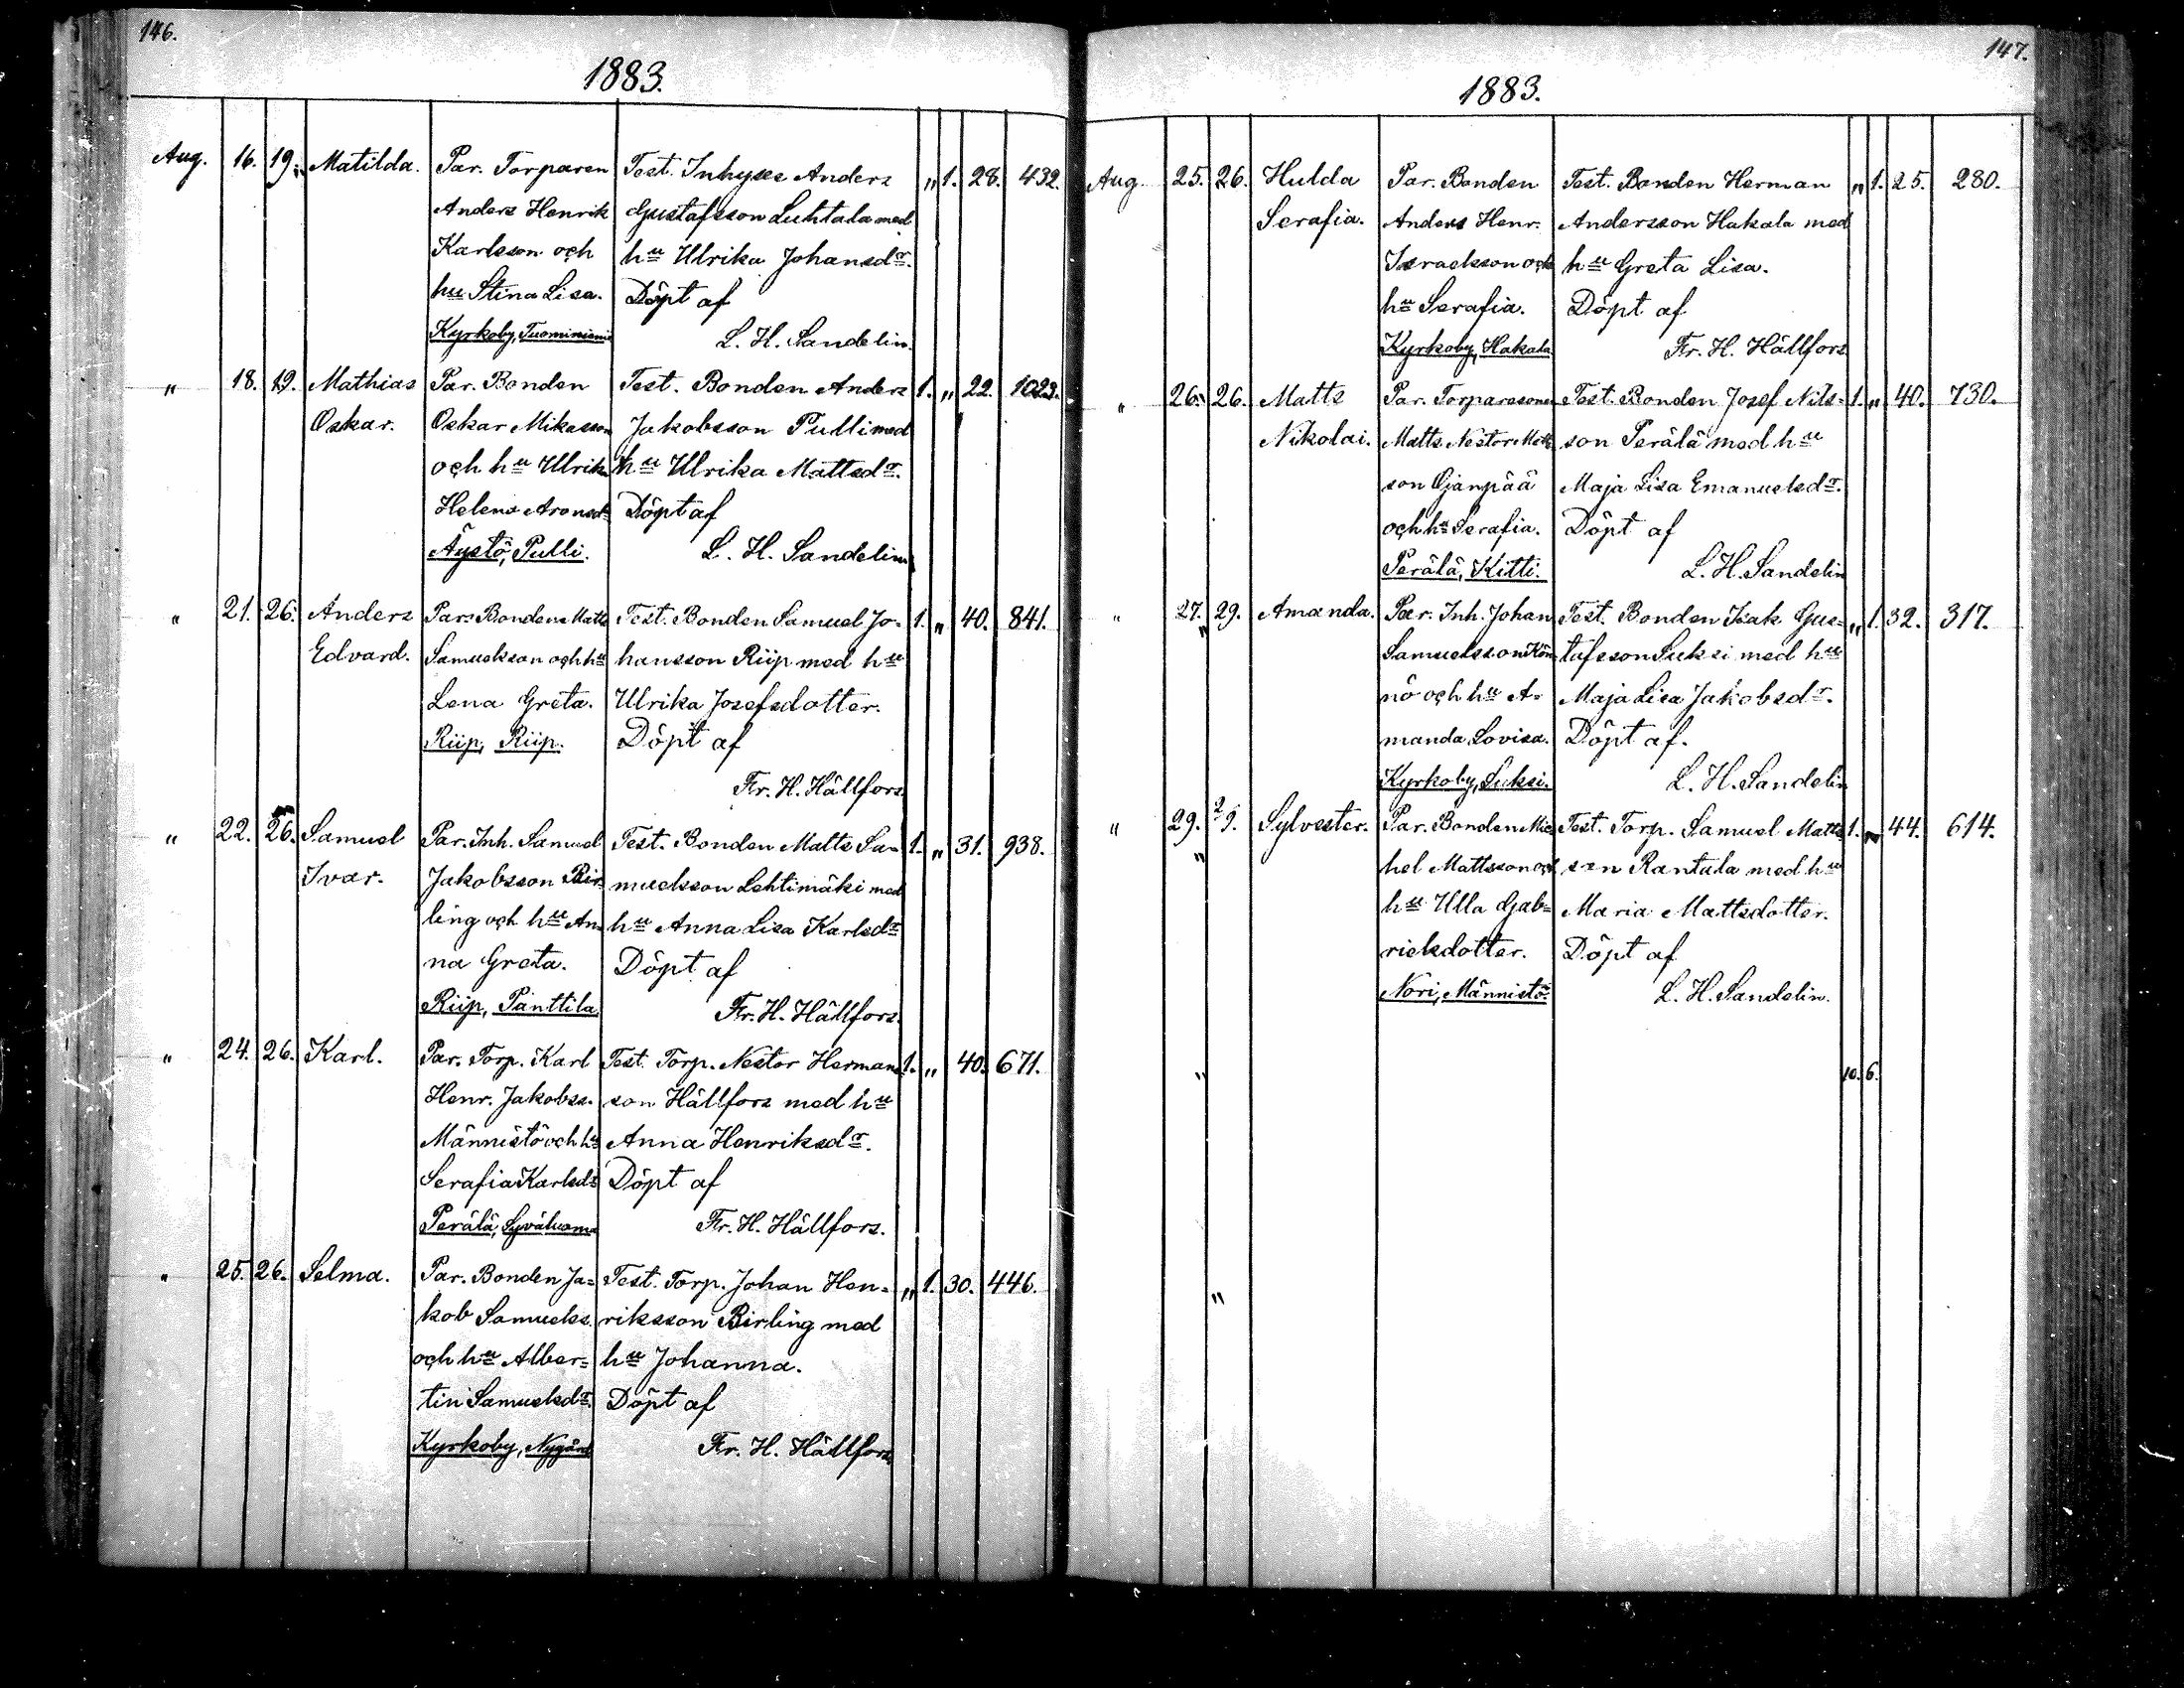 146.
1883.
Aug. 16. 19. Matilda. Par. Torparen Test. Inhyses Anders „ 1. 28. 432.
Anders Henrik Gustafsson Luhtala med
Karlsson och hu Ulrika Johansdr.
hu Stina Lisa. Döpt af
Kyrkoby, Tuominiemi L. H. Sandelin.
„ 18. 19. Mathias Par. Bonden Test. Bonden Anders 1. „ 22. 1023.
Oskar. Oskar Mikasson Jakobsson Pulli med
och hu Ulrika hu Ulrika Mattsdr.
Helena Aronsdr Döpt af
Äystö, Pulli. L. H. Sandelin
„ 21. 26. Anders Par. Bonden Matts Test. Bonden Samuel Jo- 1. „ 40. 841.
Edvard. Samuelsson och hu hansson Riip med hu
Lena Greta. Ulrika Josefsdotter.
Riip, Riip. Döpt af
Fr. H. Hällfors.
„ 22. 26. Samuel Par. Inh. Samuel Test. Bonden Matts Sa- 1. „ 31. 938.
Ivar. Jakobsson Bir- muelsson Lehtimäki med
ling och hu An- hu Anna Lisa Karlsdr
na Greta. Döpt af
Riip, Panttila Fr. H. Hällfors.
„ 24. 26. Karl. Par. Torp. Karl Test. Torp. Nestor Hermans- 1. „ 40. 671.
Henr. Jakobss. son Hällfors med hu
Männistö och hu Anna Henriksdr.
Serafia Karlsdr Döpt af
Perälä, Syväluoma Fr. H. Hällfors.
„ 25. 26. Selma. Par. Bonden Ja- Test. Torp. Johan Hen- „ 1. 30. 446.
kob Samuelss. riksson Birling med
och hu Alber- hu Johanna.
tin Samuelsdr. Döpt af
Kyrkoby, Nygård Fr. H. Hällfors.
147.
1883.
Aug. 25. 26. Hulda Par. Bonden Test. Bonden Herman „ 1. 25. 280.
Serafia. Anders Henr. Andersson Hakala med
Israelsson och hu Greta Lisa.
hu Serafia. Döpt af
Kyrkoby, Hakala Fr. H. Hällfors
„ 26. 26. Matts Par. Torparesonen Test. Bonden Josef Nils- 1. „ 40. 730.
Nikolai. Matts Nestor Matts- son Perälä med hu
son Ojanpää Maja Lisa Emanuelsdr.
och hu Serafia. Döpt af
Perälä, Kitti. L. H. Sandelin
„ 27. 29. Amanda. Par. Inh. Johan Test. Bonden Isak Gus- „ 1. 32. 317.
Samuelsson Kön- tafsson Suksi med hu
nö och hu A- Maja Lisa Jakobsdr.
manda Lovisa. Döpt af.
Kyrkoby, Suksi. L. H. Sandelin
„ 29. 29. Sylvester. Par. Bonden Mic- Test. Torp. Samuel Matts- 1. „ 44. 614.
hel Mattsson och son Rantala med hu
hu Ulla Gab- Maria Mattsdotter.
rielsdotter. Döpt af
Nori, Männistö. L. H. Sandelin.
10. 6.